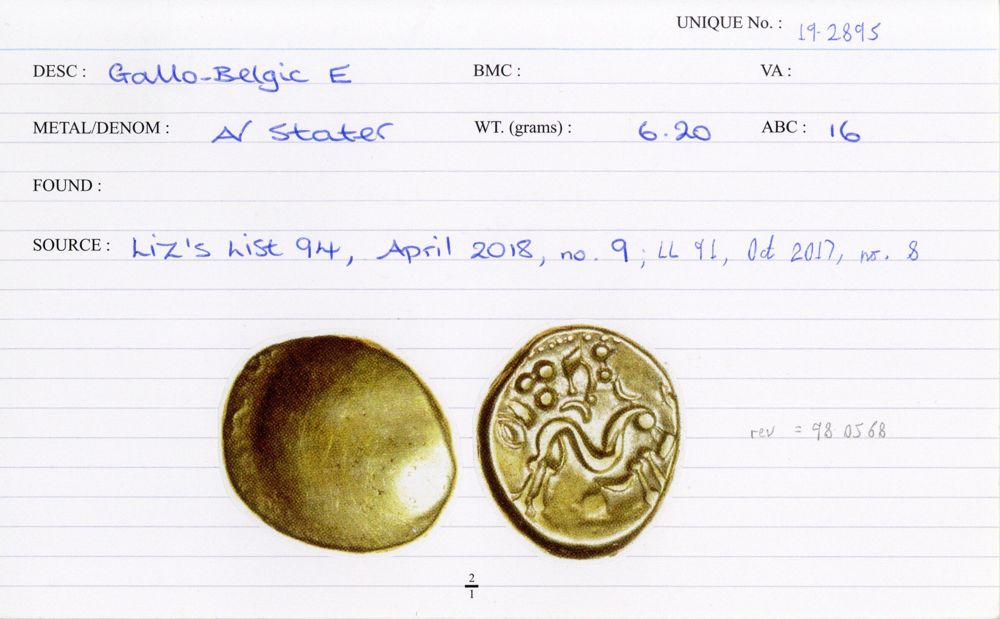 UNIQUE No. : 19.2895
DESC : Gallo-Belgic E BMC : VA :
METAL/DENOM : AV Stater WT. (grams) : 6.20 ABC : 16
FOUND :
SOURCE : Liz's List 94, April 2018, no. 9; LL 91, Oct 2017, no. 8
rev = 98.0568
2
1